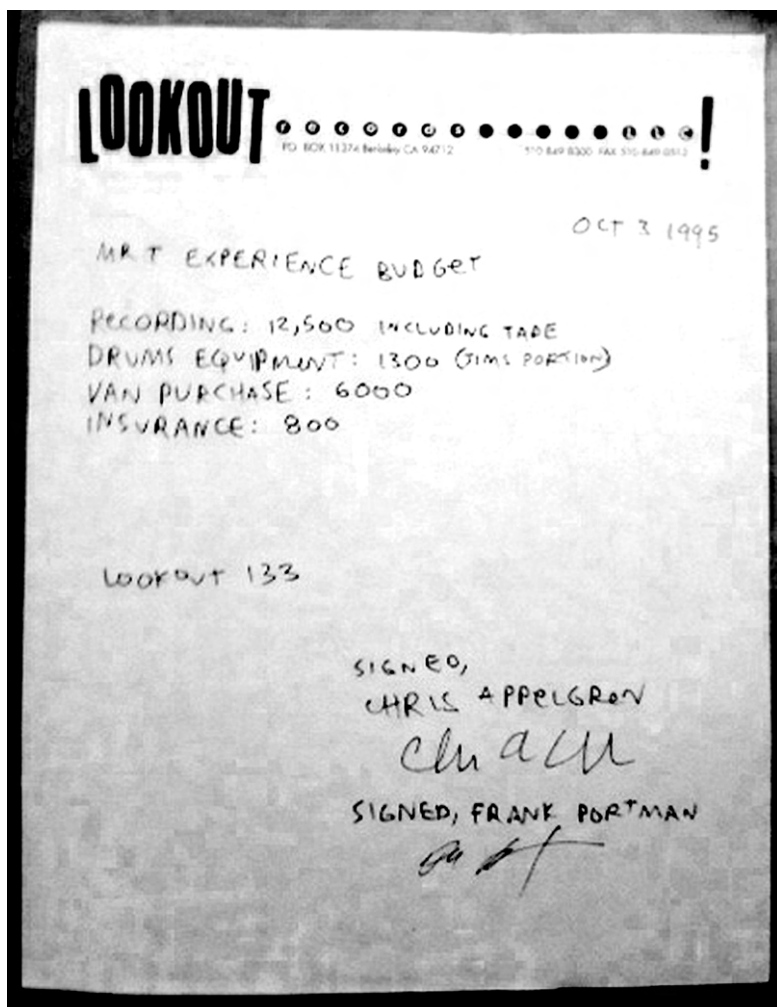 LOOKOUT records !
PO BOX 11374 Berkeley CA 94712 510 849 8300 FAX 510-849-0512
OCT 3 1995
MR T EXPERIENCE BUDGET
RECORDING: 12,500 INCLUDING TAPE
DRUMS EQUIPMENT: 1300 (JIMS PORTION)
VAN PURCHASE: 6000
INSURANCE: 800
LOOKOUT 133
SIGNED,
CHRIS APPELGREN
SIGNED, FRANK PORTMAN